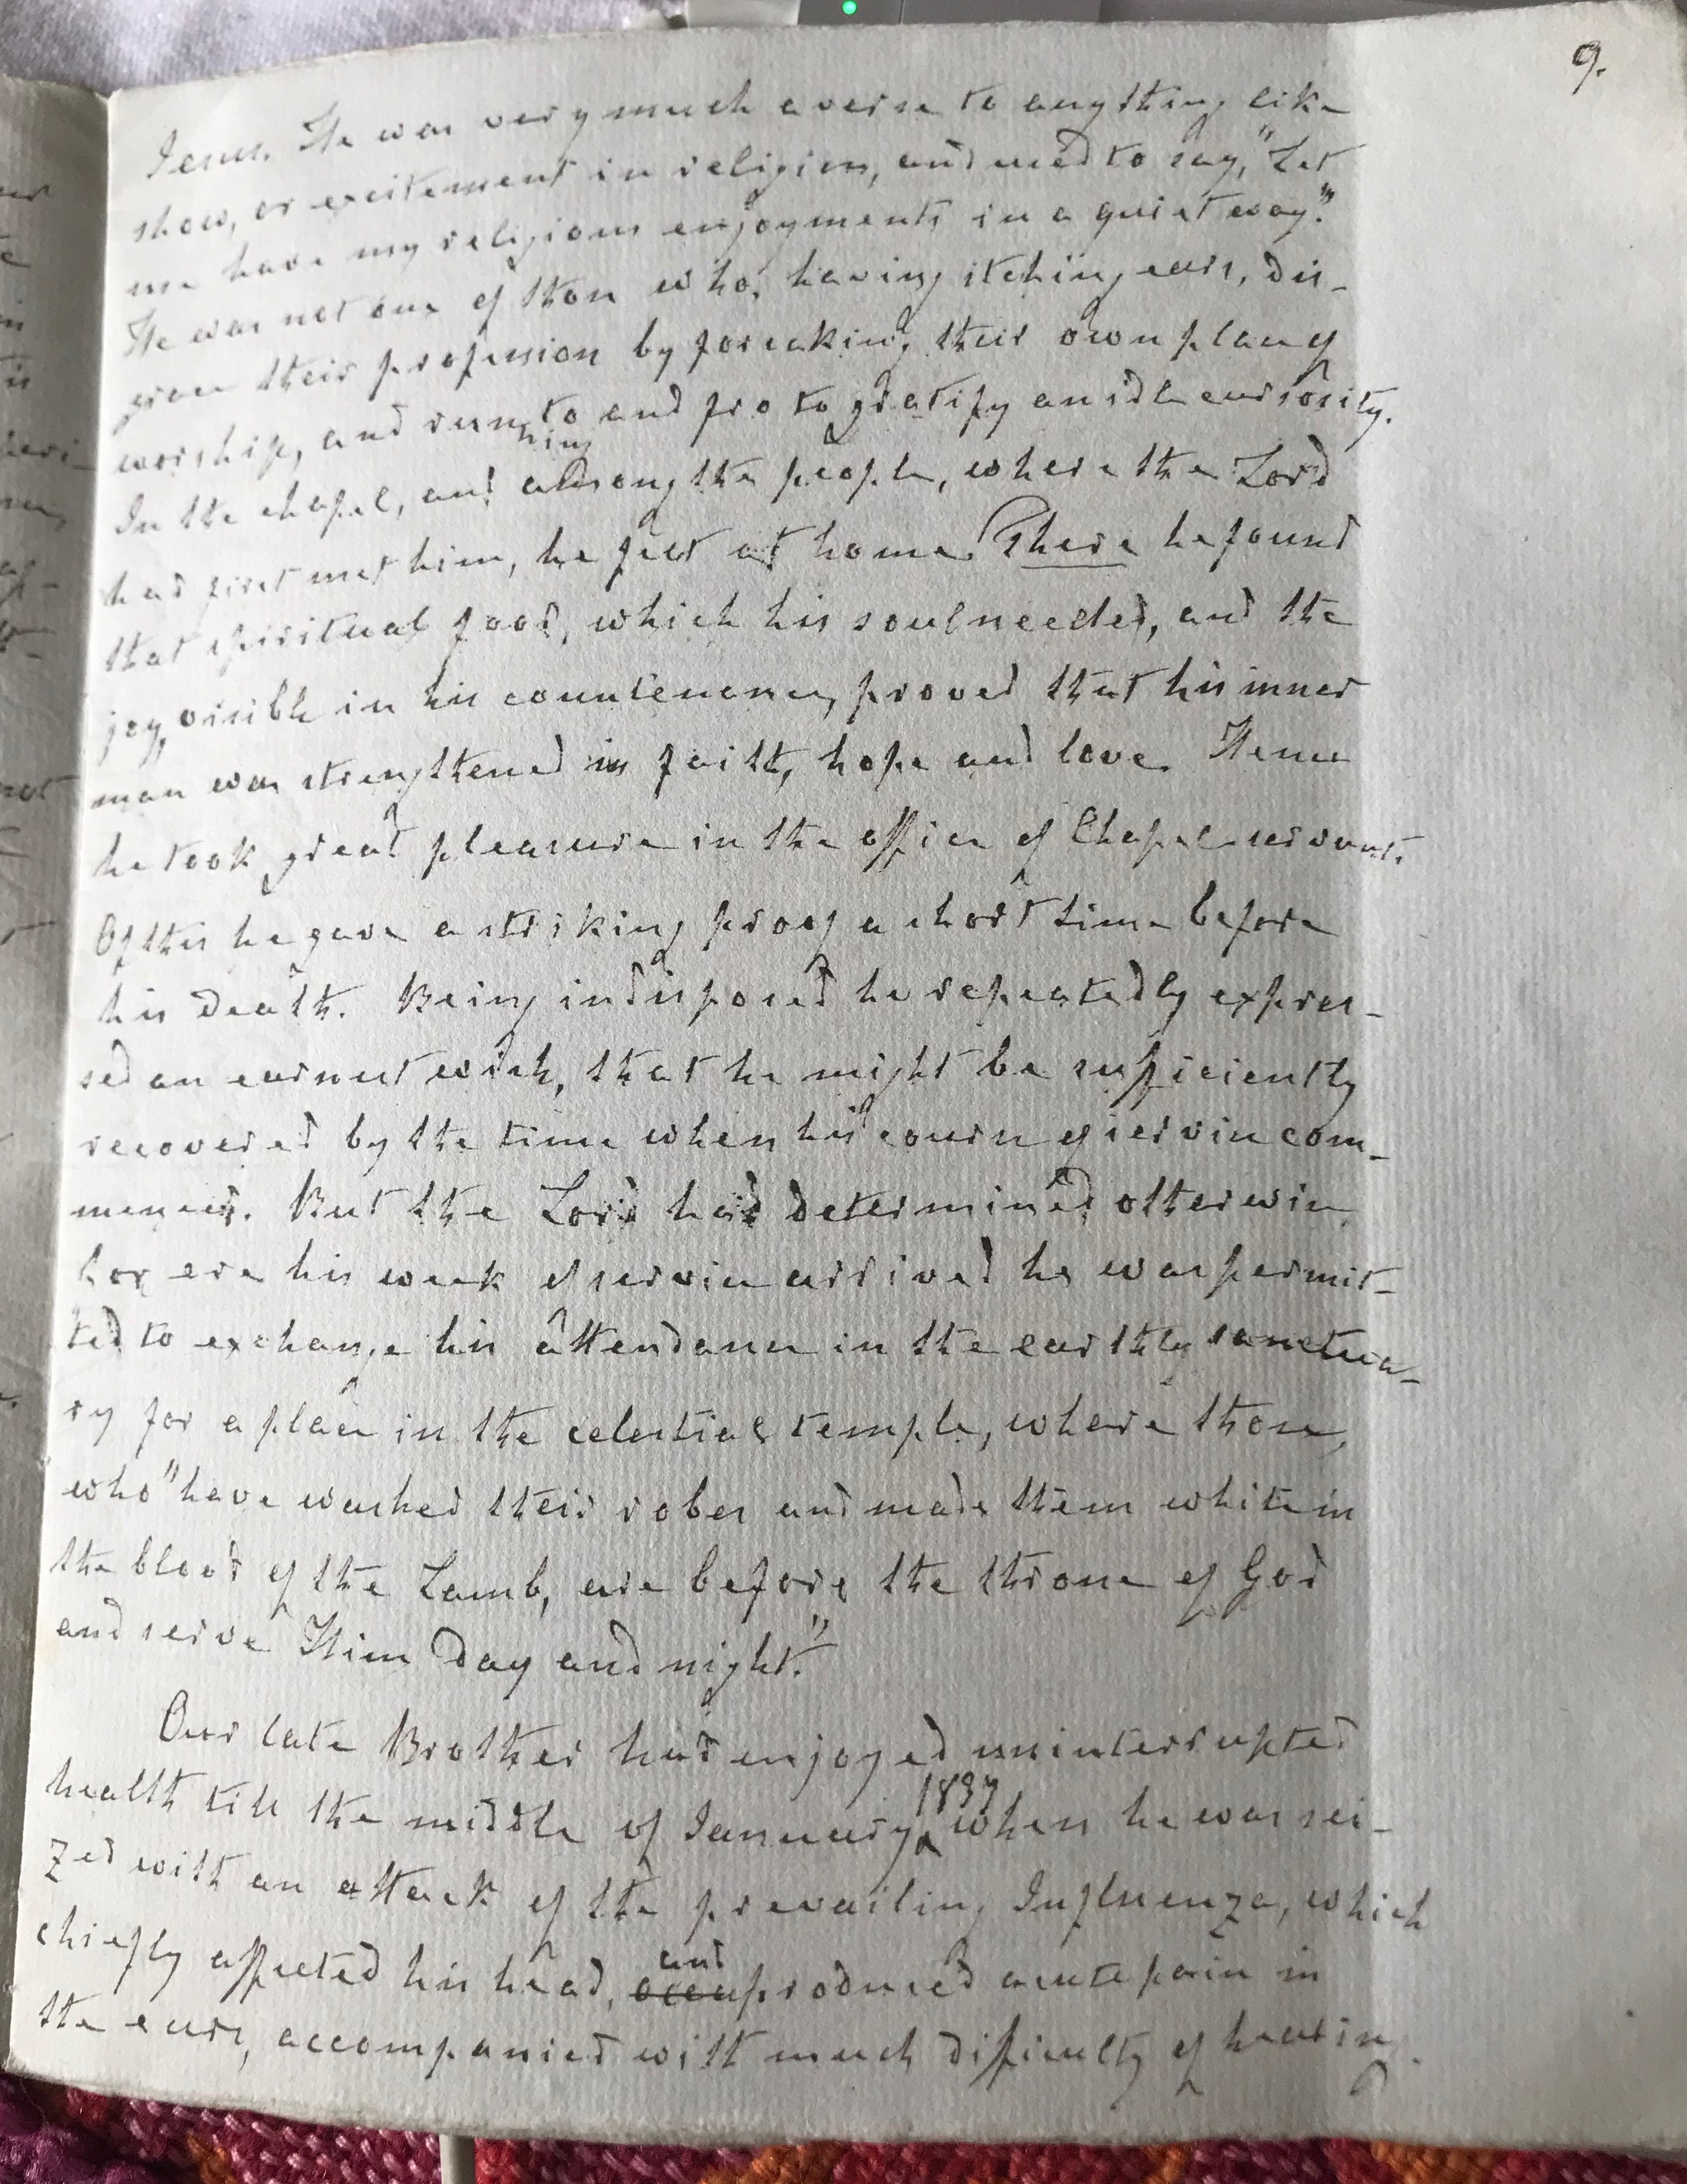 9.
Jesus. He was very much averse to anything like
show, or excitement in religion, and used to say, "Let
me have my religious enjoyments in a quiet way."
He was not one of those who, having itching ears, dis-
grace their profession by forsaking their own place of
worship, and running to and fro to gratify an idle curiosity.
In the chapel, and among the people, where the Lord
had first met him, he felt at home. There he found
that spiritual food, which his soul needed, and the
joy, visible in his countenance, proved that his inner
man was strengthened in faith, hope and love. Hence
he took great pleasure in the office of Chapel-servant.
Of this he gave a striking proof a short time before
his death. Being indisposed he repeatedly expres-
sed an earnest wish, that he might be sufficiently
recovered by the time when his course of service com-
menced. But the Lord had determined otherwise,
for ere his week of service arrived he was permit-
ted to exchange his attendance in the earthly sanctua-
ry for a place in the celestial temple, where those,
who "have washed their robes and made them white in
the blood of the Lamb, are before the throne of God
and serve Him day and night."
Our late Brother had enjoyed uninterrupted
health till the middle of January 1837 when he was sei-
zed with an attack of the prevailing Influenza, which
chiefly affected his head, and produced acute pain in
the ears, accompanied with much difficulty of hearing.